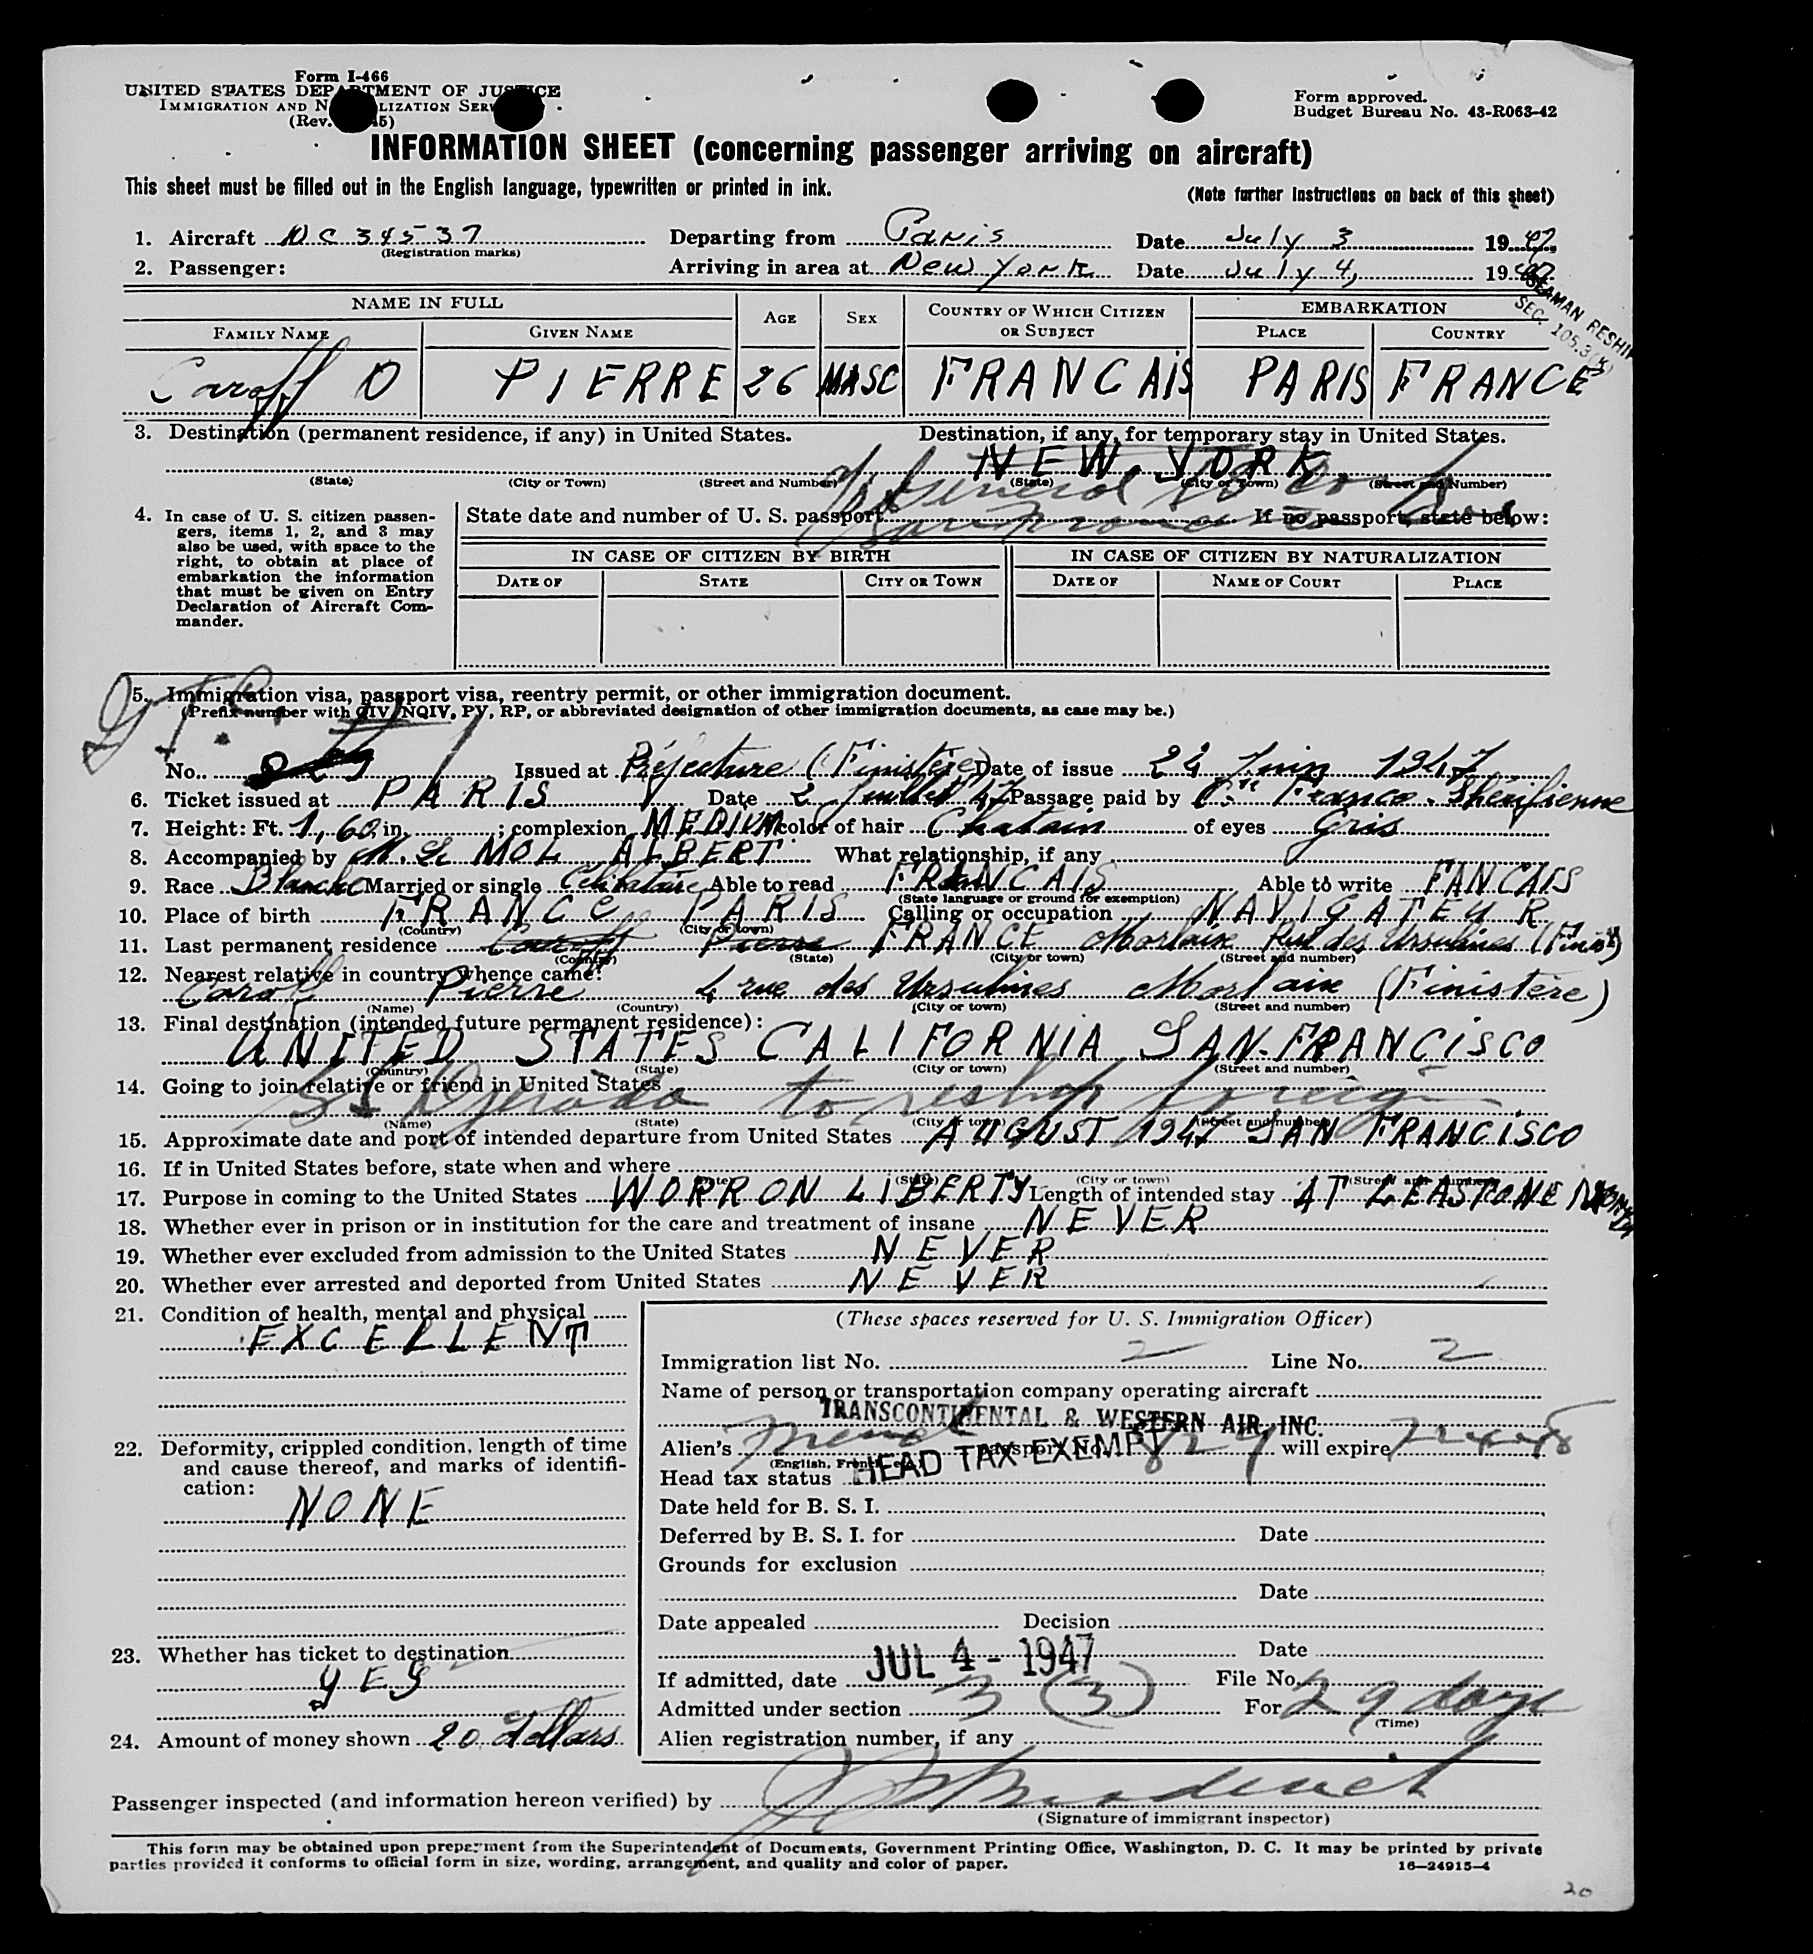 Form I-466
UNITED STATES DEPARTMENT OF JUSTICE
IMMIGRATION AND NATURALIZATION SERVICE
(Rev. 45)
Form approved.
Budget Bureau No. 43-R063-42
INFORMATION SHEET (concerning passenger arriving on aircraft)
This sheet must be filled out in the English language, typewritten or printed in ink.
(Note further instructions on back of this sheet)
1. Aircraft NC 34537 Departing from Paris Date July 3 1947
(Registration marks)
2. Passenger: Arriving in area at New York Date July 4, 1947
SEAMAN RESHIP
SEC. 105.3(K)
NAME IN FULL AGE SEX COUNTRY OF WHICH CITIZEN OR SUBJECT EMBARKATION
FAMILY NAME GIVEN NAME PLACE COUNTRY
Caroff O PIERRE 26 MASC FRANCAIS PARIS FRANCE
3. Destination (permanent residence, if any) in United States. Destination, if any, for temporary stay in United States.
NEW YORK
(State) (City or Town) (Street and Number) (State) (City or Town) (Street and Number)
General
4. In case of U. S. citizen passen-
gers, items 1, 2, and 3 may
also be used, with space to the
right, to obtain at place of
embarkation the information
that must be given on Entry
Declaration of Aircraft Com-
mander.
State date and number of U. S. passport If no passport, state below:
San Francisco
IN CASE OF CITIZEN BY BIRTH IN CASE OF CITIZEN BY NATURALIZATION
DATE OF STATE CITY OR TOWN DATE OF NAME OF COURT PLACE
5. Immigration visa, passport visa, reentry permit, or other immigration document.
(Prefix number with QIV, NQIV, PV, RP, or abbreviated designation of other immigration documents, as case may be.)
No. Issued at Préfecture (Finistère) Date of issue 24 Juin 1947
6. Ticket issued at PARIS Date 2 Juillet 47 Passage paid by Cie Franco-Shérifienne
7. Height: Ft. 1,60 in. ; complexion MEDIUM color of hair Chatain of eyes Gris
8. Accompanied by M. Le MOL ALBERT What relationship, if any
9. Race Blanche Married or single Célibataire Able to read FRANCAIS Able to write FANCAIS
(State language or ground for exemption)
10. Place of birth FRANCE PARIS Calling or occupation NAVIGATEUR
(Country) (City or town)
11. Last permanent residence Caroff Pierre FRANCE Morlaix Rue des Ursulines (Finist)
(Country) (State) (City or town) (Street and number)
12. Nearest relative in country whence came:
Caroff Pierre 4 rue des Ursulines Morlaix (Finistère)
(Name) (Country) (City or town) (Street and number)
13. Final destination (intended future permanent residence):
UNITED STATES CALIFORNIA SAN-FRANCISCO
(Country) (State) (City or town) (Street and number)
14. Going to join relative or friend in United States
to reship foreign
(Name) (State) (City or town) (Street and number)
15. Approximate date and port of intended departure from United States AUGUST 1947 SAN FRANCISCO
16. If in United States before, state when and where
(Date) (State) (City or town) (Street and number)
17. Purpose in coming to the United States WORR ON LIBERTY Length of intended stay AT LEAST ONE MONTH
18. Whether ever in prison or in institution for the care and treatment of insane NEVER
19. Whether ever excluded from admission to the United States NEVER
20. Whether ever arrested and deported from United States NEVER
21. Condition of health, mental and physical
EXCELLENT
22. Deformity, crippled condition, length of time
and cause thereof, and marks of identifi-
cation:
NONE
23. Whether has ticket to destination
YES
24. Amount of money shown 20 dollars
(These spaces reserved for U. S. Immigration Officer)
Immigration list No. 2 Line No. 2
Name of person or transportation company operating aircraft
TRANSCONTINENTAL & WESTERN AIR, INC.
Alien's French passport No. 827 will expire
(English, French, etc.)
Head tax status HEAD TAX EXEMPT
Date held for B. S. I.
Deferred by B. S. I. for Date
Grounds for exclusion
Date
Date appealed Decision
Date
If admitted, date JUL 4 - 1947 File No.
Admitted under section 3 (3) For 29 days
(Time)
Alien registration number, if any
Passenger inspected (and information hereon verified) by
(Signature of immigrant inspector)
This form may be obtained upon prepayment from the Superintendent of Documents, Government Printing Office, Washington, D. C. It may be printed by private
parties provided it conforms to official form in size, wording, arrangement, and quality and color of paper.
16—24915-4
20